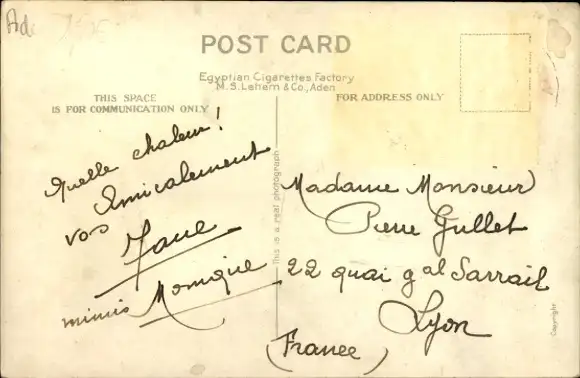 Ade
POST CARD
Egyptian Cigarettes Factory
M. S. Leham & Co., Aden
THIS SPACE
IS FOR COMMUNICATION ONLY
FOR ADDRESS ONLY
Quelle chaleur!
Amicalement
vos
Monique
This is a real photograph
Madame Monsieur
Pierre Gullet
22 quai gal Sarrail
Lyon
(France)
Copyright